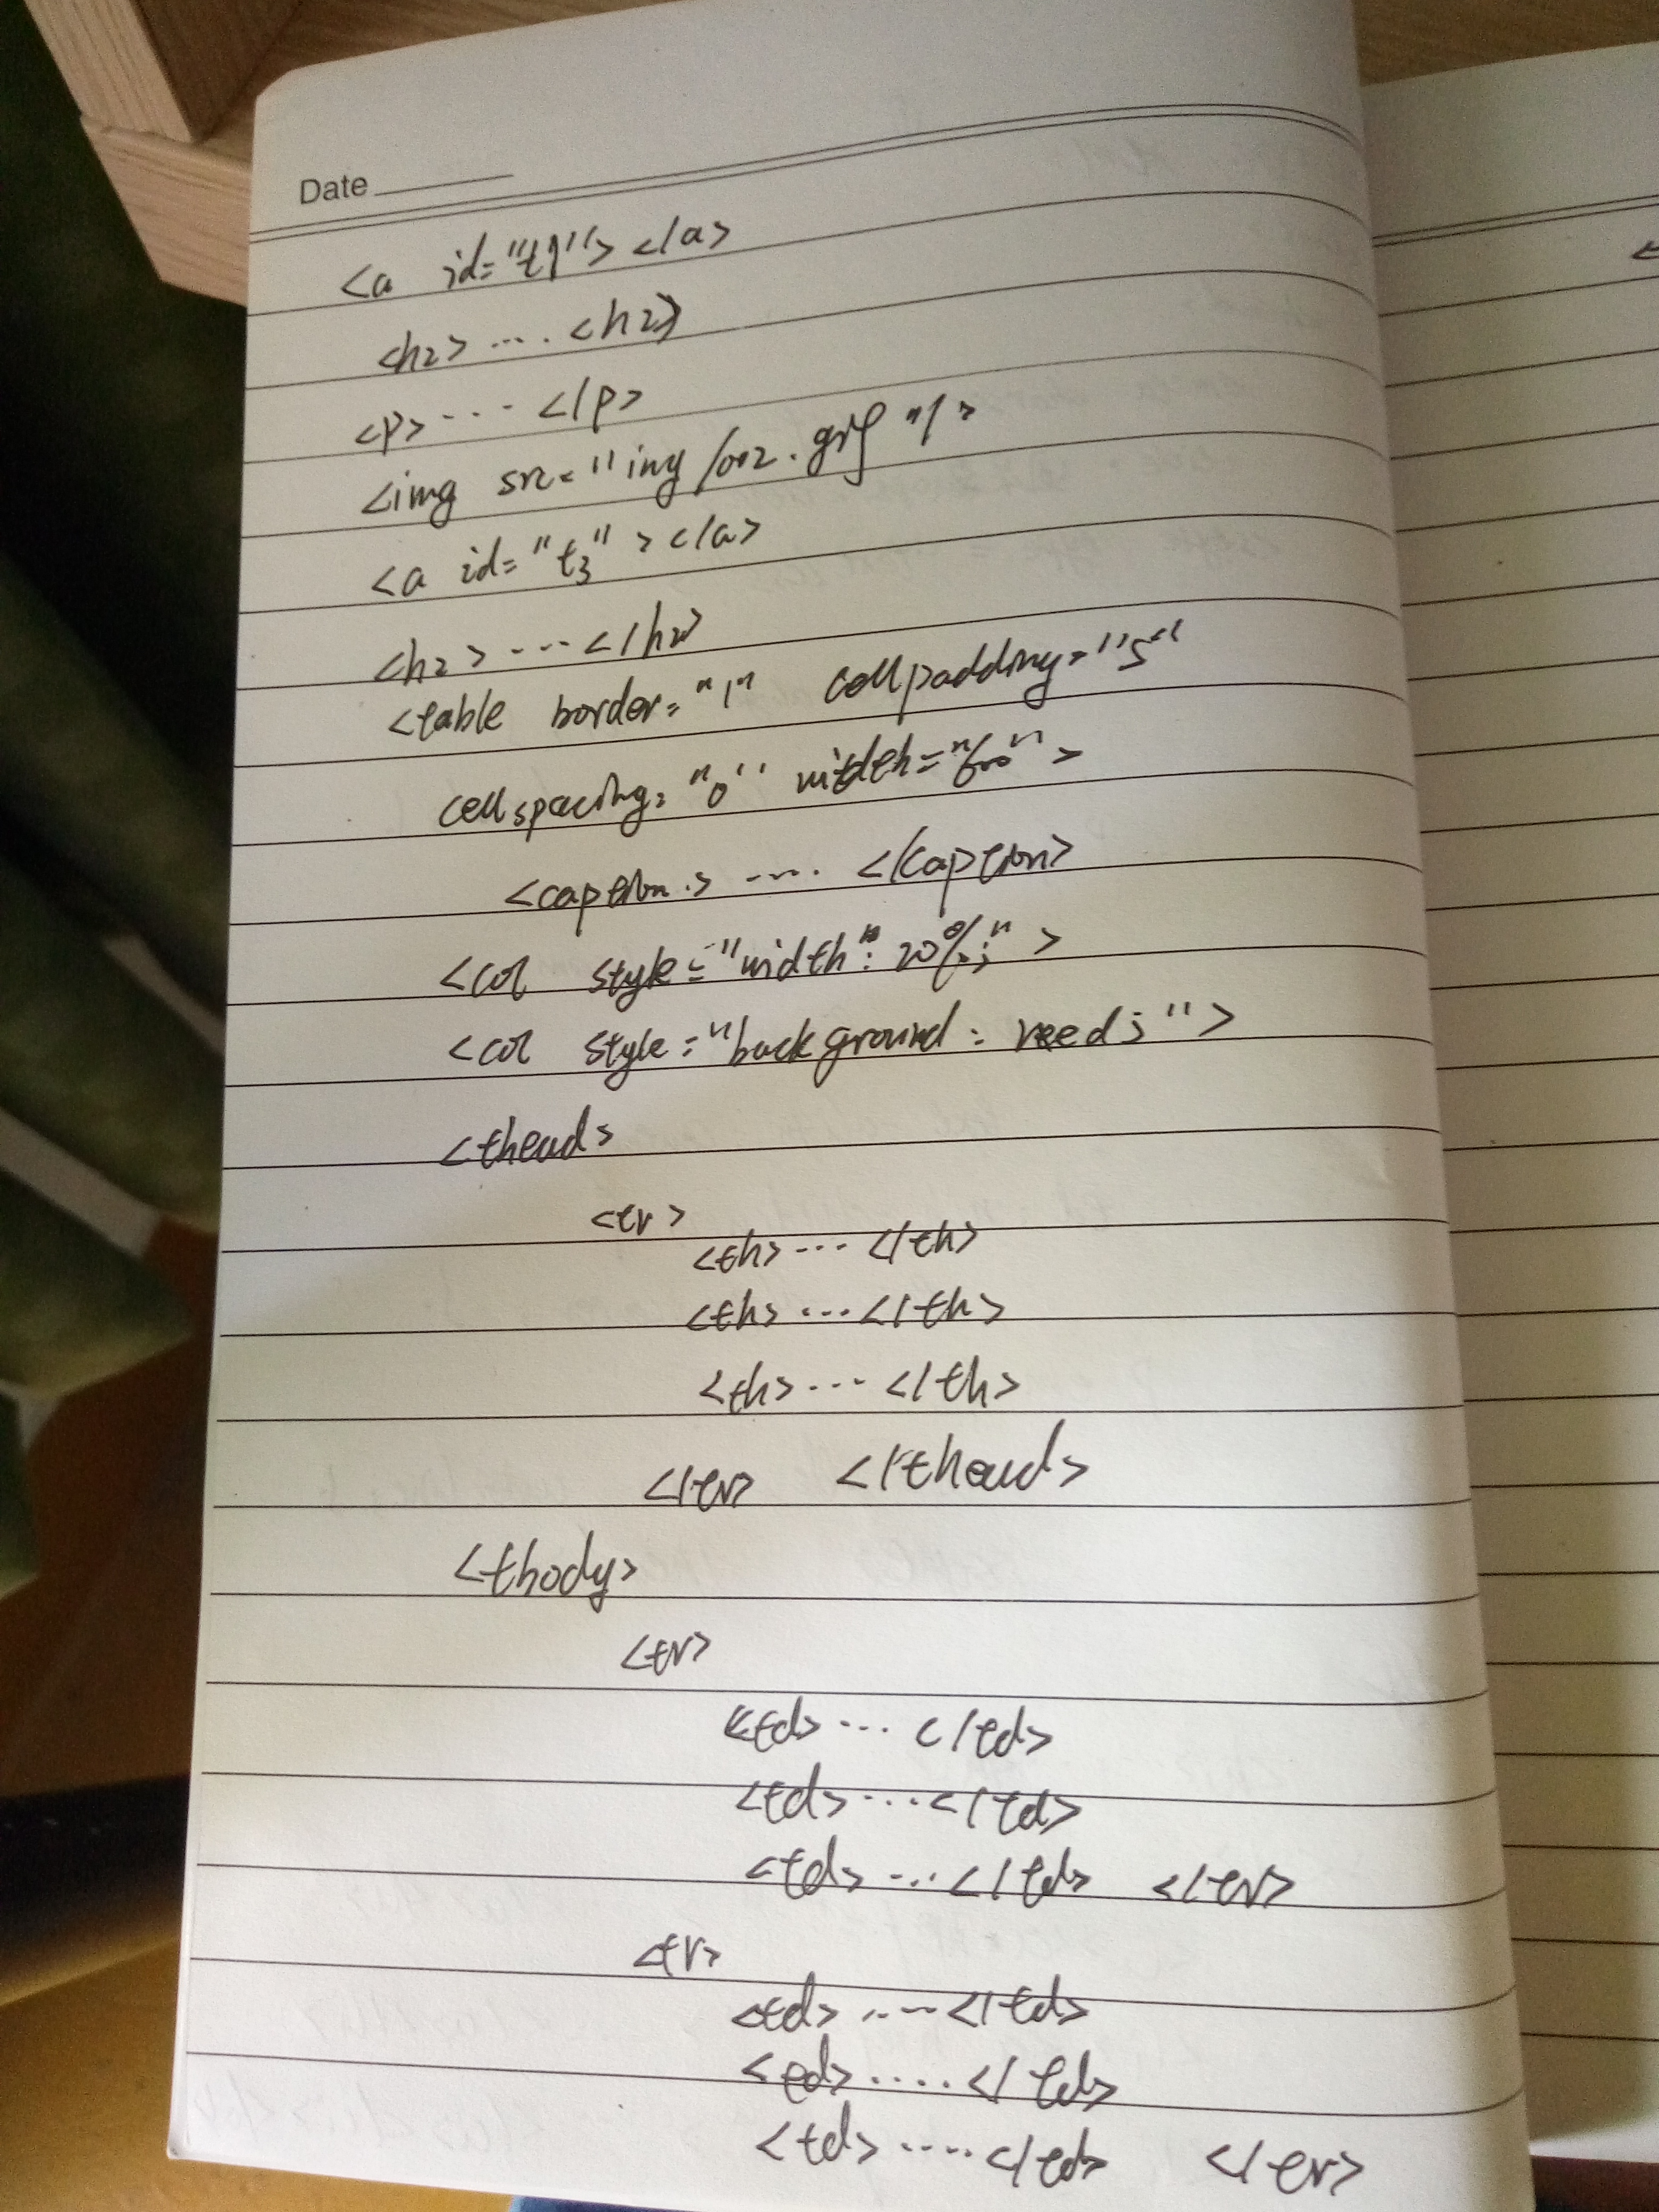 Date
<a id="t1"></a>
<h2>....<h2>
<p>...</p>
<img src="img/002.gif"/>
<a id="t3"></a>
<h2>...</h2>
<table border="1" cellpadding="5"
cellspacing="0" width="600">
<caption>....</caption>
<col style="width": 20%;">
<col style="background: reed;">
<thead>
<tr>
<th>...</th>
<th>...</th>
<th>...</th>
</tr> </thead>
<tbody>
<tr>
<td>...</td>
<td>...</td>
<td>...</td> </tr>
<tr>
<td>....</td>
<td>.....</td>
<td>....</td> </tr>